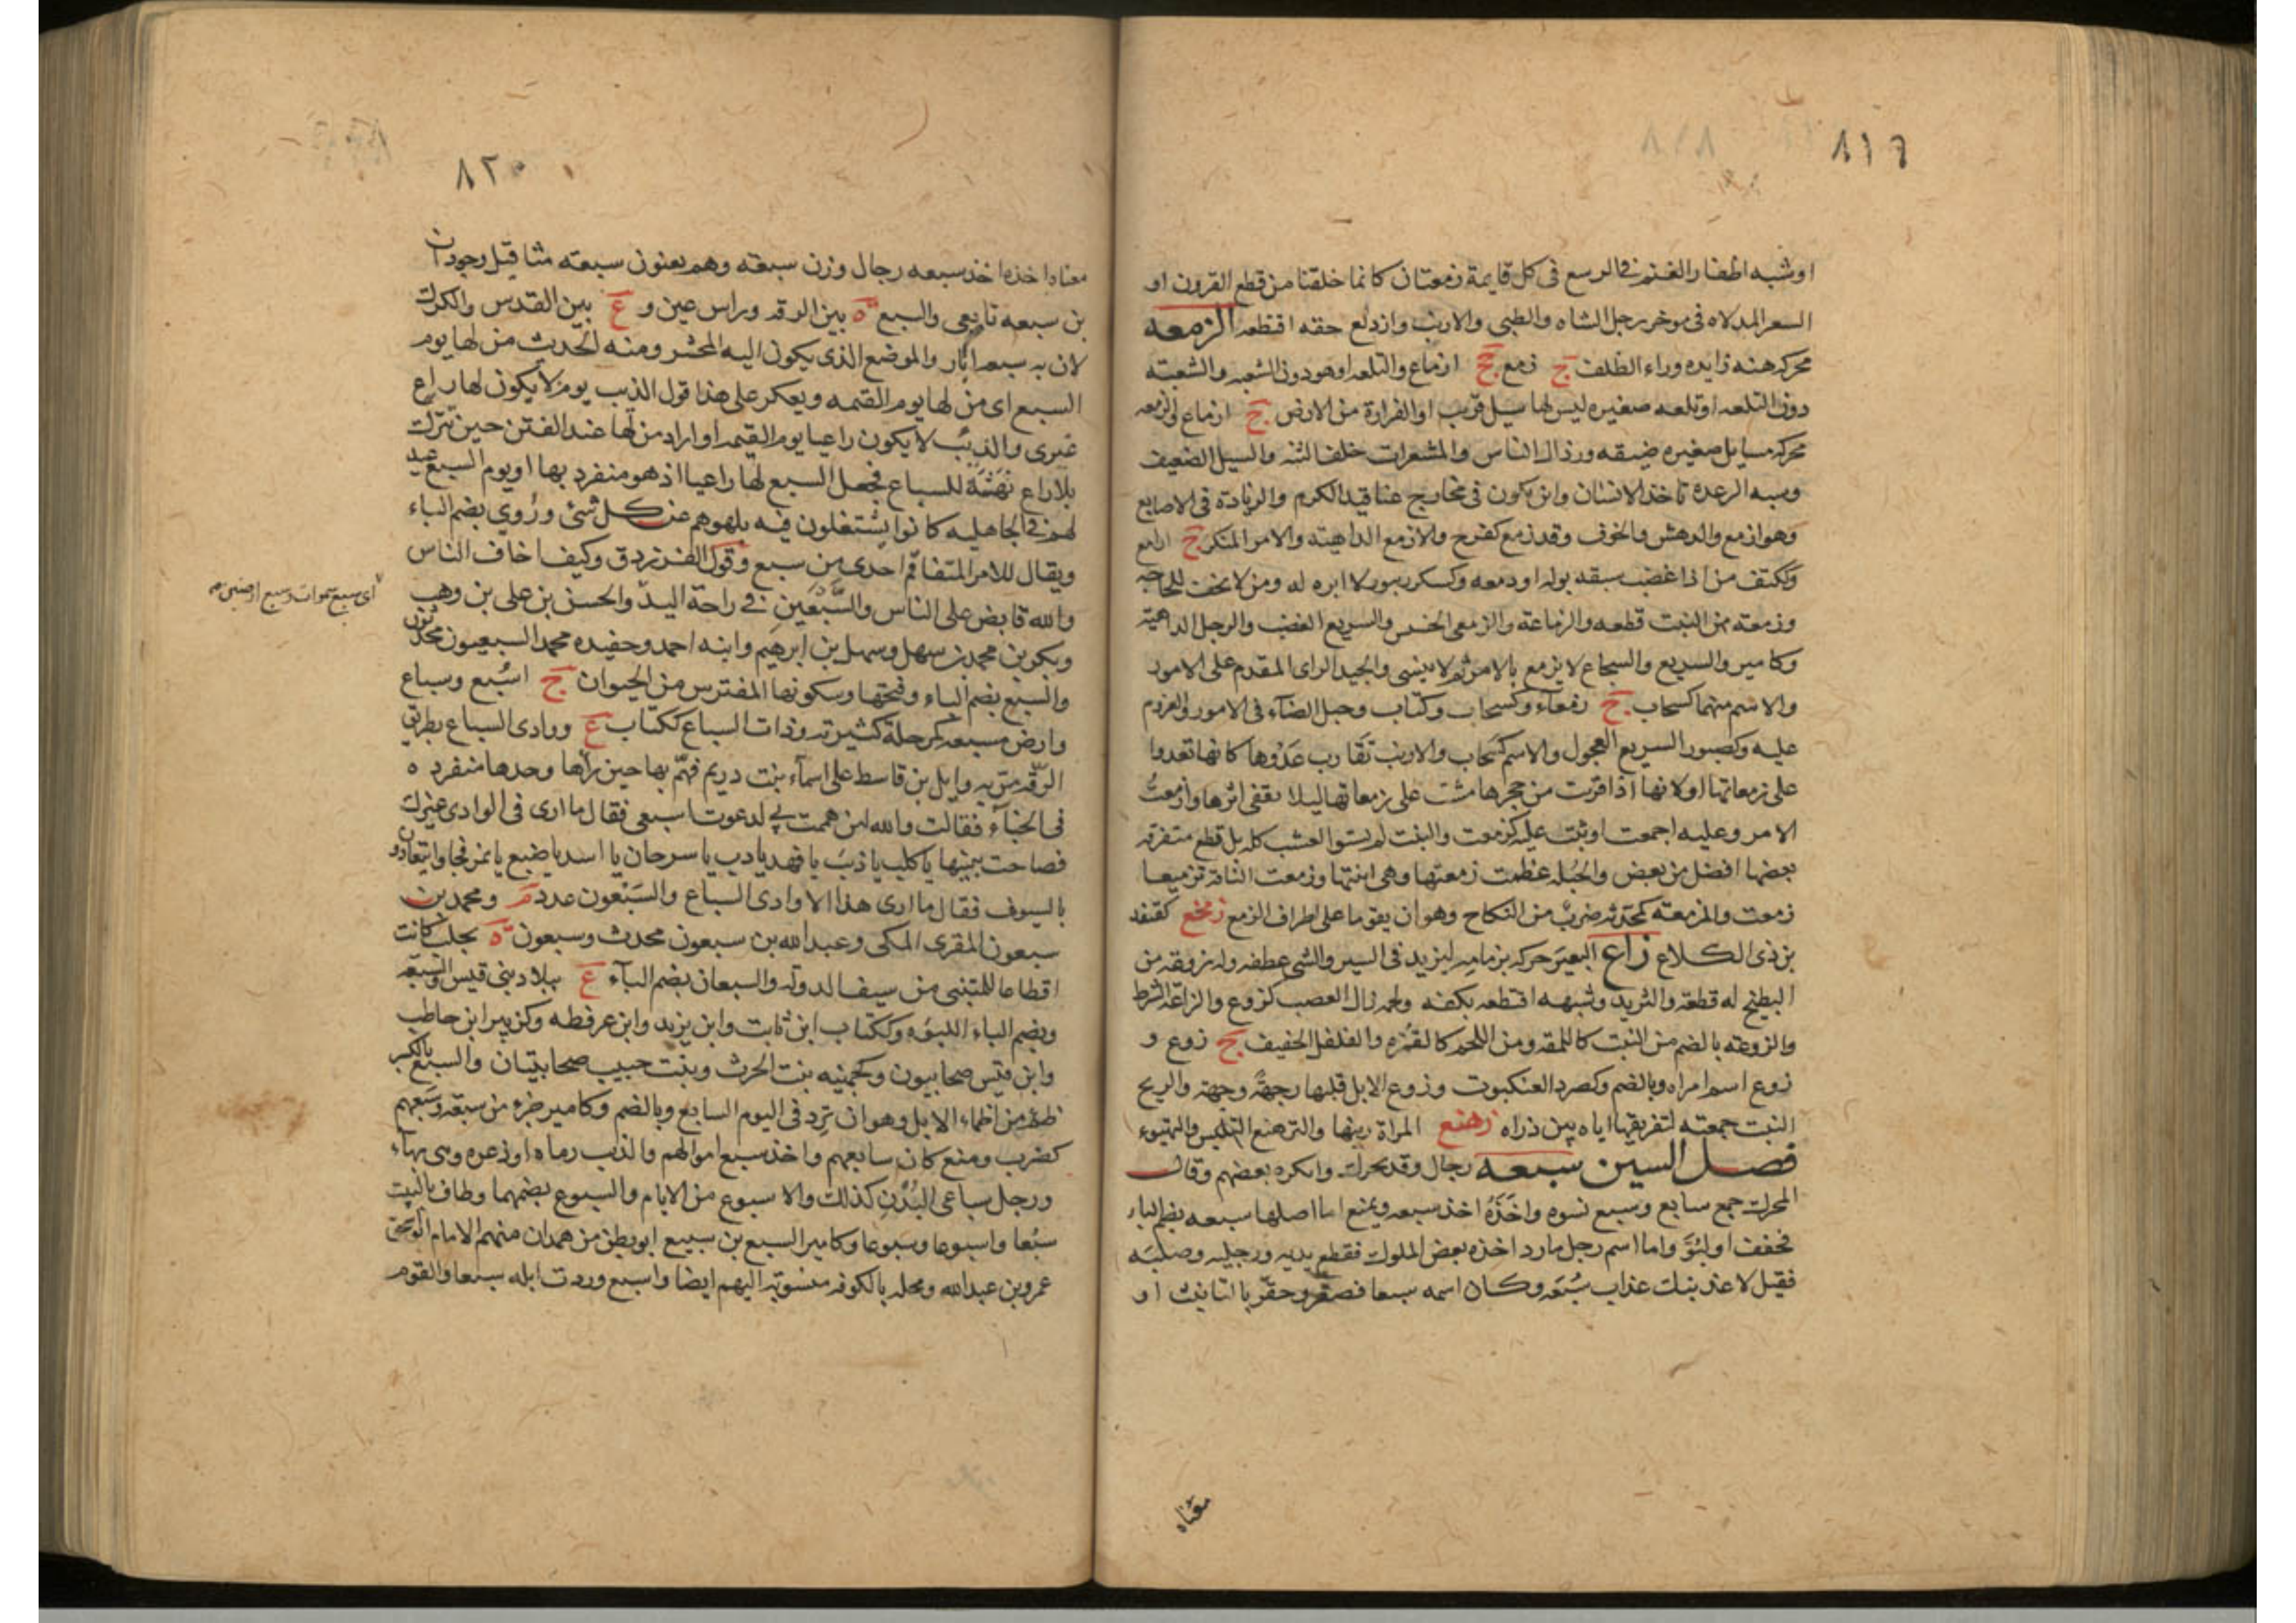 ٨١٩
اوشبه اظفار الغنم فى الرسغ فى كل قايمة زمعتان كانما خلقتا من قطع القرون او
السعر المدلاه فى موخر رجل الشاه والظبى والارنب وازدلع حقه اقتطعه الزمعه
محركه هنه زايده وراء الظلف ج زمع جج ازماع والتلعه اوهودون الشعبه والشعبته
دون التلعه اوتلعه صغيره ليس لها سيل قريب اوالقرارة من الارض ج ازماع والزمعه
محركه مسايل صغيره ضيقه ورذال الناس والشعرات خلف الثنه والسيل الضعيف
وسبه الرعدة تاخذ الانسان وابن يكون فى مخارج عناقيد الكرم والزيادة فى الاصابع
وهو ازمع والدهش والخوف وقد زمع كفرح والازمع الداهية والامر المنكر ج ازامع
وككتف من اذا غضب سبقه بوله اودمعه وكسكر زبور لا ابره له ومن لا يخف للحاجه
وزمعته من النبت قطعه والزماعة والزمعى الخسيس والسريع الغضب والرجل الداهية
وكامير والسريع والسجاع لا يزمع بالامر ثم لا ينسى والجيد الراى المقدم على الامور
والاسم منهما كسحاب ج زمعاء وكسحاب وكتاب وجبل المضاء فى الامور والعزم
عليه وكصبور السريع العجول والاسم كسحاب والارنب تقارب عدوها كانها تعدوا
على زمعاتها اولانها اذا قربت من جحرها مشت على زمعاتها ليلا يقفى اثرها وازمعتُ
الامر وعليه اجمعت اوثبت عليه كزمعت والنبت لم يستوا العشب كله بل قطع متفرقه
بعضها افضل من بعض والحبله عظمت زمعتها وهى ابنتها وزمعت الناقة تزميعا
زمعت والمزمعته كمحدثه ضرب من النكاح وهو ان يقوما على اطراف الزمع زمنع كقنفد
بن ذى الكلاع زاع البعير حركه بزمامه ليزيد فى السير والشى عطفه وله زوعه من
البطيخ له قطعة والثريد وشبهه اقتطعه بكفه ولحمه زال العصب كزوع والزاعه الشرط
والزوعته بالضم من النبت كاللمقه ومن اللحم كالقمزه والفلفل الخفيف ج زوع و
زوع اسم امراه وبالضم وكصرد العنكبوت وزوع الابل قلبها رجهةً وجهة والريح
النبت جمعته لتفريقها اياه بين ذراه زهنع المراة زينها والتزهنع التلبس والتهيوء
فصل السين سبعه رجال وقد يحرك وانكره بعضهم وقال
المحرك جمع سابع وسبع نسوه واخَذَهُ اخذ سبعه ويمنع اما اصلها سبعه بضم الباء
فخفف اولبُوَّ واما اسم رجل مارد اخذه بعض الملوك فقطع يديه ورجليه وصلبَه
فقيل لاعذبنك عذاب سُبعه وكان اسمه سبعا فصغر وحقر بالتانيث او
معناه
٨٢٠
معناه اخذه اخذ سبعه رجال وزن سبعه وهم يعنون سبعه مثاقيل وجودان
بن سبعه تابعى والسبع ة بين الرقه وراس عين و ع بين القدس والكرك
لان به سبعه ابار والموضع الذى يكون اليه المحشر ومنه الحديث من لها يوم
السبع اى من لها يوم القيمه ويعكر على هذا قول الذيب يوم لا يكون لها راع
غيرى والذيب لا يكون راعيا يوم القيمه اواراد من لها عند الفتن حين تترك
بلاراع نهبَةً للسباع فجعل السبع لها راعيا اذ هو منفرد بها اويوم السبع عيد
لهم فى الجاهليه كانوا يشتغلون فيه بلهوهم عن كل شئ ورُوي بضم الباء
ويقال للامر المتفاقم احدى من سبع وقول الفرزدق وكيف اخاف الناس
والله قابض على الناس والسَّبْعَين فى راحة اليد والحسن بن على بن وهب
اى سبع سموات وسبع ارضين
وبكر بن محمد بن سهل وسهل بن ابرهيم وابنه احمد وحفيده محمد السبعيون محدثون
والسبع بضم الباء وفتحها وسكونها المفترس من الحيوان ج اسْبُع وسباع
وارض مسبعه كمرحلة كثيرته وذات السباع ككتاب ع ووادى السباع بطريق
الرقّه مرّ به وايل بن قاسط على اسماء بنت دريم فهَمَّ بها حين رأها وحدها منفرده
فى الخباء فقالت والله لئن هممت بى لدعوت اسبعى فقال ما ارى فى الوادى غيرك
فصاحت ببنيها يا كلب يا ذئب يا فهد يا دب يا سرحان يا اسد يا ضبع يا نمر فجاوا يتعادون
بالسيوف فقال ما ارى هذا الا وادى السباع والسَبْعون عدد م ومحمد بن
سبعون المقرى المكى وعبد الله بن سبعون محدث وسبعون ة بحلب كانت
اقطاعا للمتنبى من سيف الدوله والسبعان بضم الباء ع ببلاد بنى قيس والسبعه
وبضم الباء اللبوَه وككتاب ابن ثابت وابن يزيد وابن عرفطه وكزبير ابن حاطب
وابن قيس صحابيون وكجهينه بنت الحرث وبنت حبيب صحابيتان والسبع بالكسر
ظمْءٌ من اظماء الابل وهو ان ترد فى اليوم السابع وبالضم وكامير جزء من سبعه وسَبَعهم
كضرب ومنع كان سابعهم واخذ سبع اموالهم والذيب رماه اوذعره
ورجل سباعى البُدْن كذلك والاسبوع من الايام والسبوع بضمهما وطاف بالبيت
سَبْعا واسبوعا وسبوعا وكامير السبيع بن سبيع ابو بطن من همدان منهم الامام ابو اسحق
عمرو بن عبد الله ومحله بالكوفه منسوبه اليهم ايضا واسبع وردت ابله سبعا والقوم